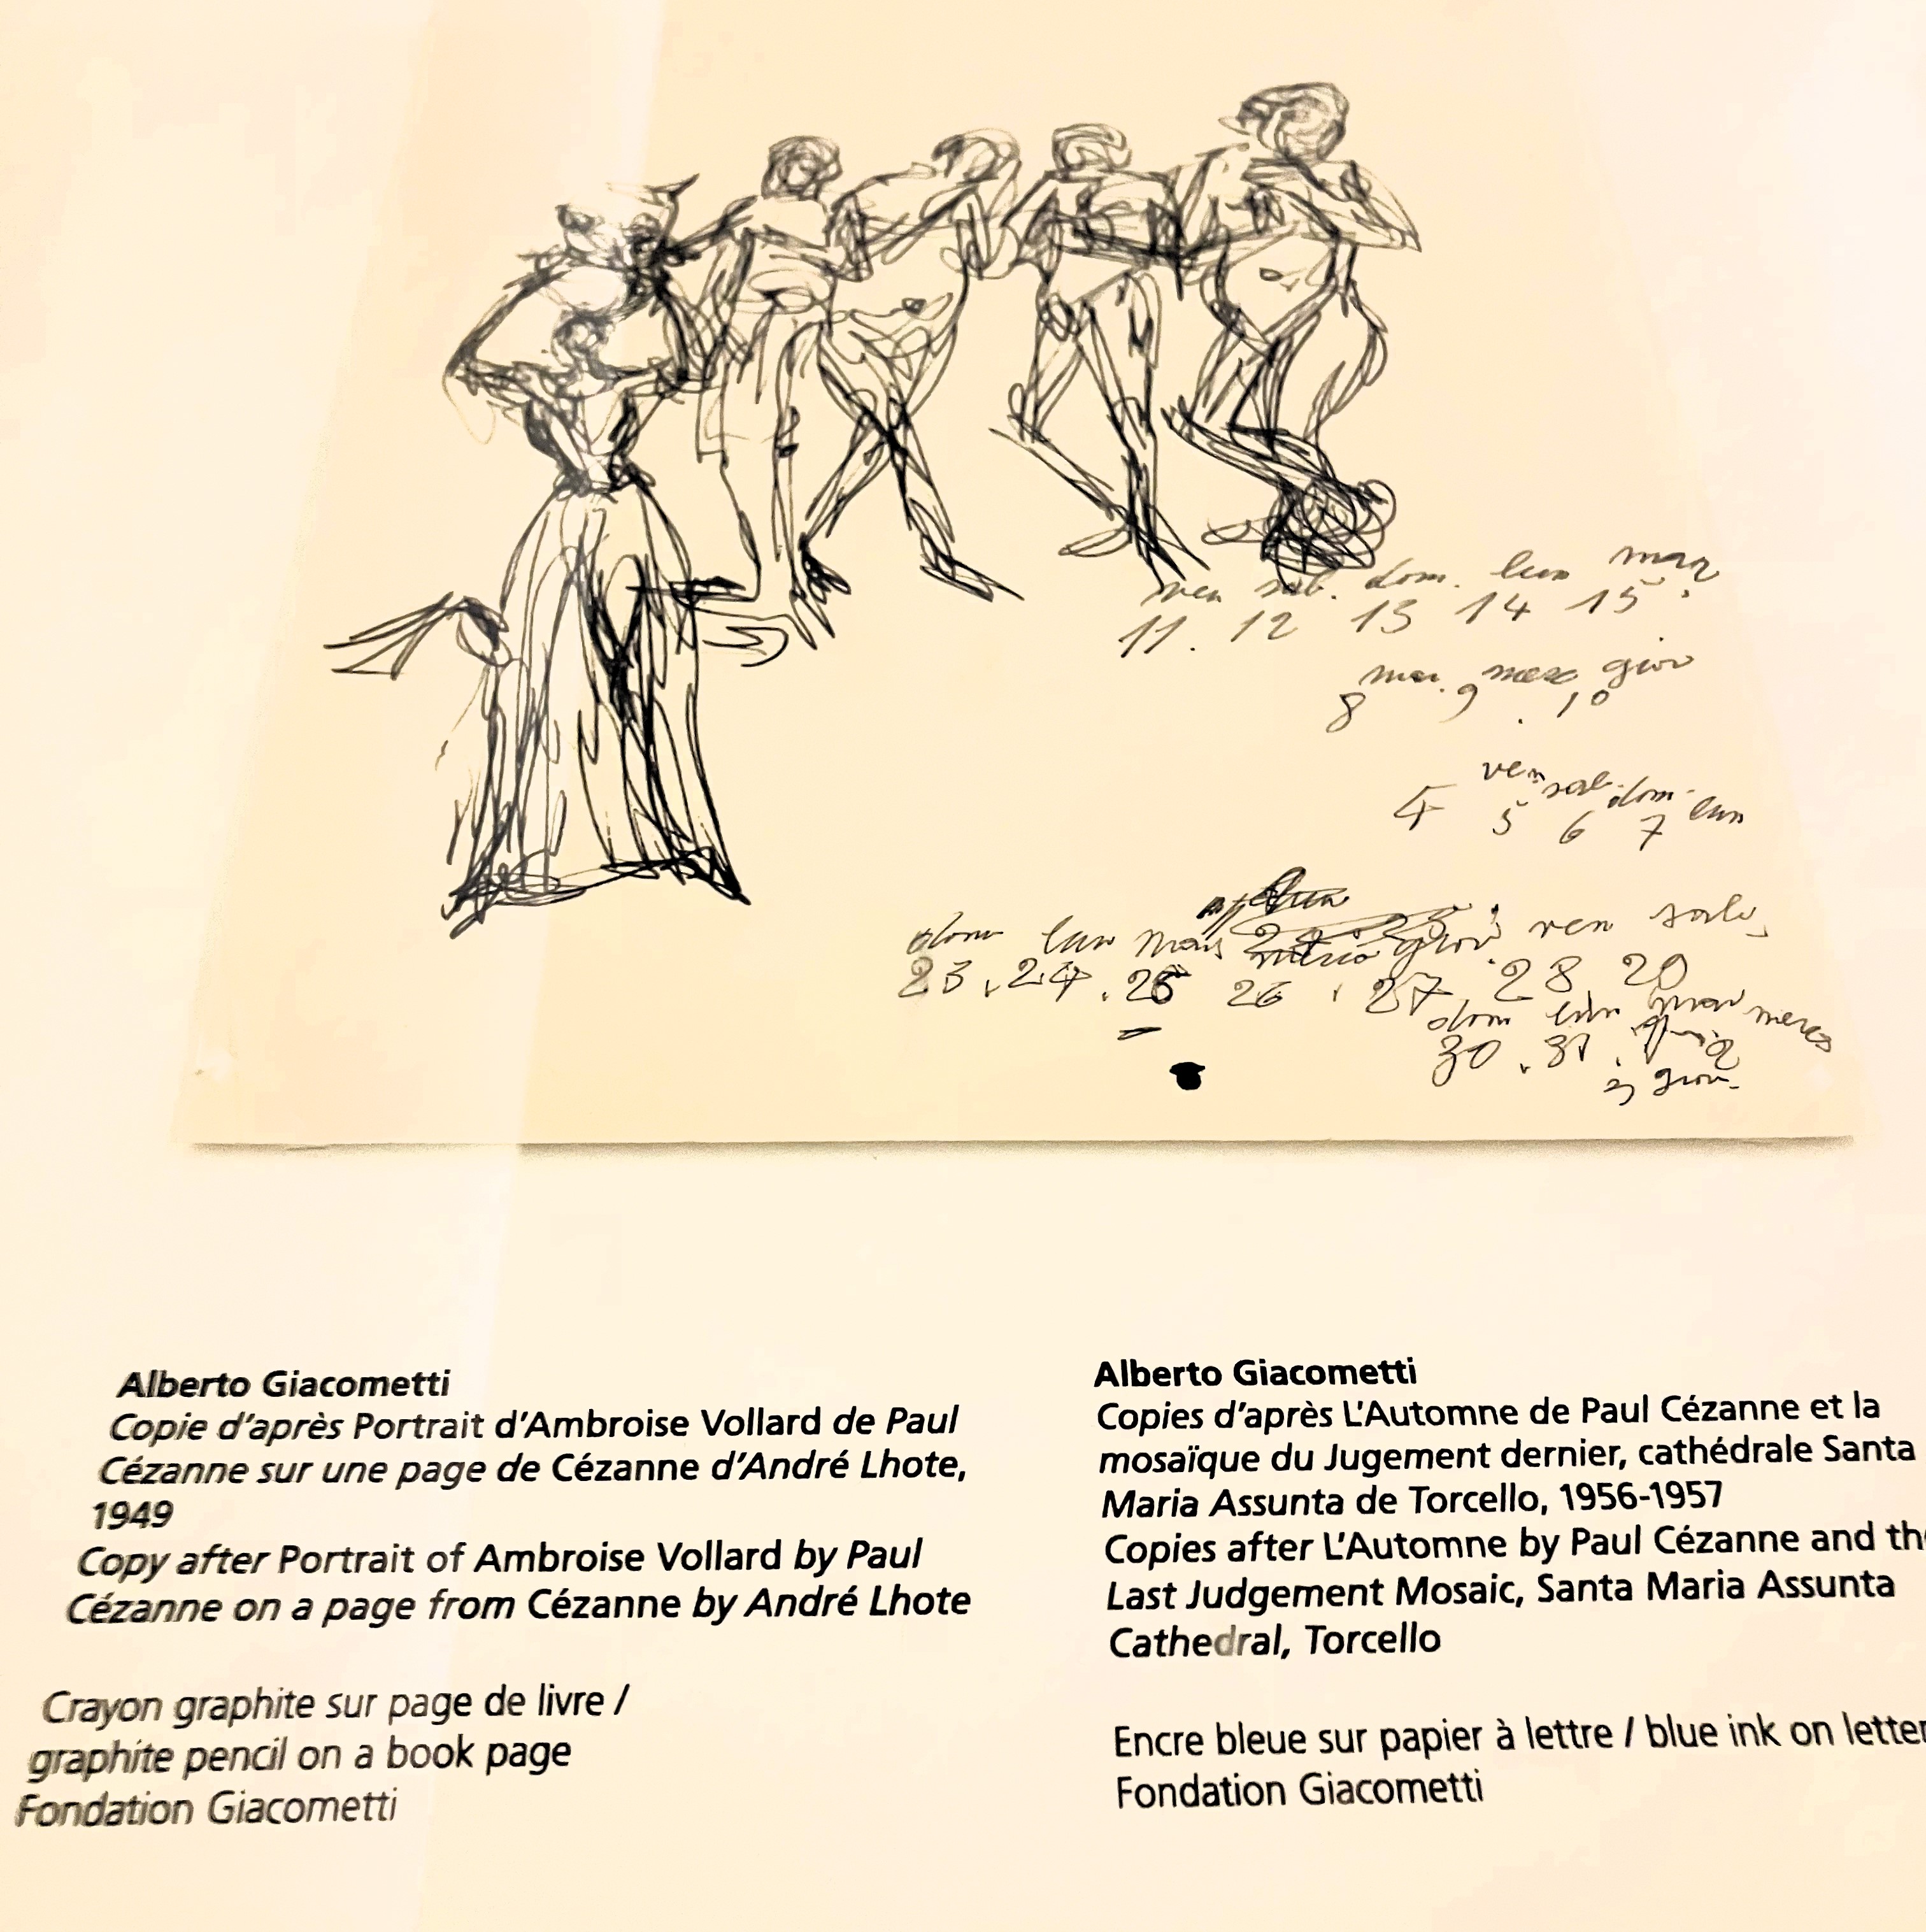 ven sab. dom. lun mar
11. 12 13 14 15
mar. merc giov
8 9 . 10
ven sab. dom. lun
4 5 6 7
dom lun mar merc giov. ven sab
23. 24. 25 26 . 27. 28. 20
dom lun mar merc
30. 31.
giov.
Alberto Giacometti
Copie d'après Portrait d'Ambroise Vollard de Paul
Cézanne sur une page de Cézanne d'André Lhote,
1949
Copy after Portrait of Ambroise Vollard by Paul
Cézanne on a page from Cézanne by André Lhote
Crayon graphite sur page de livre /
graphite pencil on a book page
Fondation Giacometti
Alberto Giacometti
Copies d'après L'Automne de Paul Cézanne et la
mosaïque du Jugement dernier, cathédrale Santa
Maria Assunta de Torcello, 1956-1957
Copies after L'Automne by Paul Cézanne and th
Last Judgement Mosaic, Santa Maria Assunta
Cathedral, Torcello
Encre bleue sur papier à lettre / blue ink on letter
Fondation Giacometti